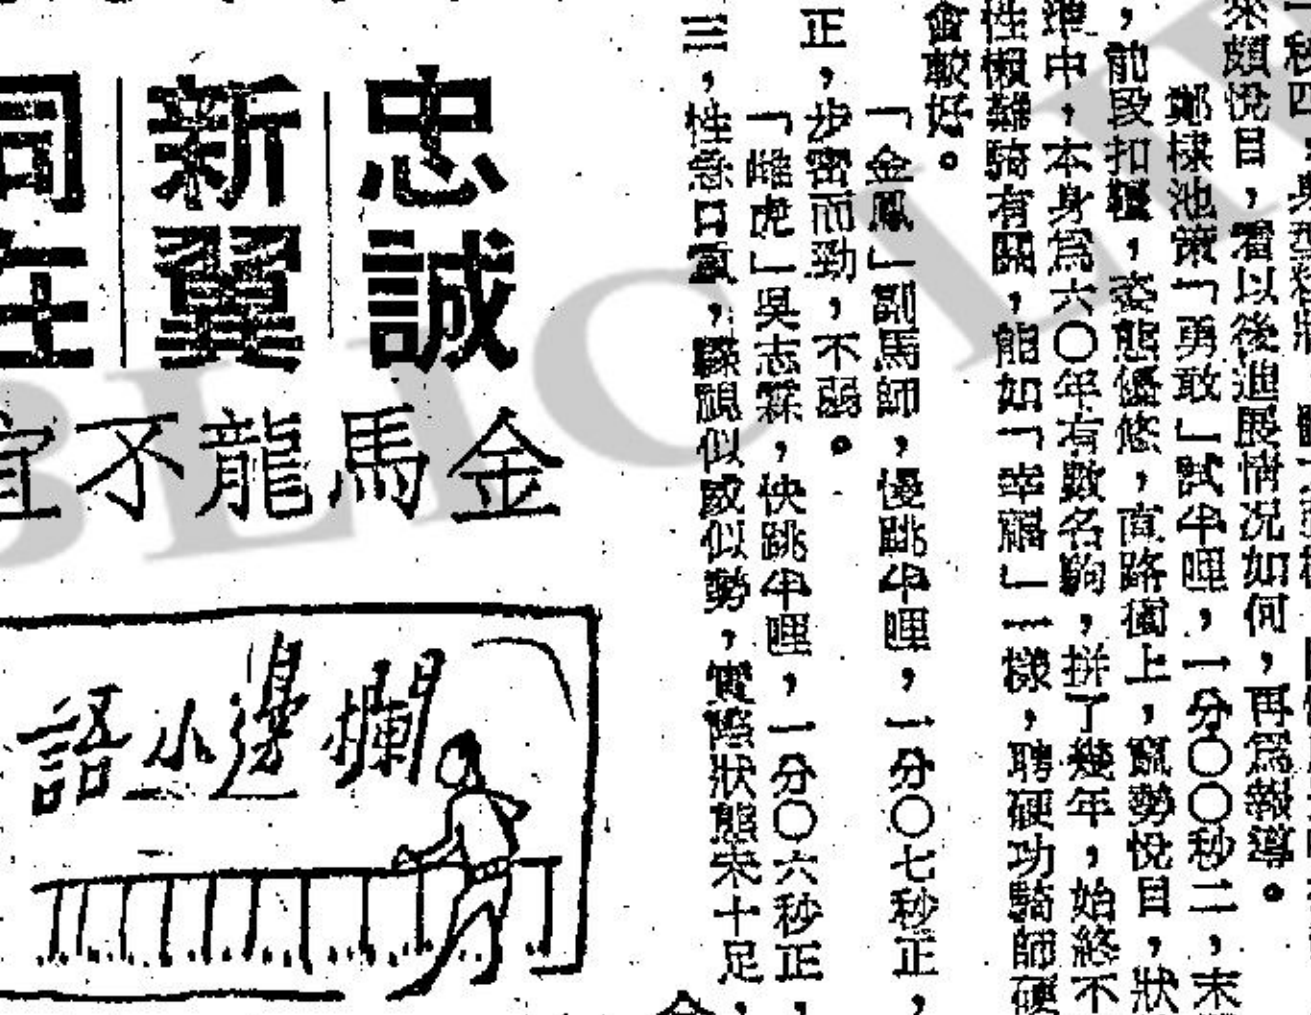 來頗悅目，看以後進展情况如何，再爲報導。
鄭棣池策「勇敢」試半哩，一分〇〇秒二，末
，前段扣韁，姿態優悠，直路窗上，竄勢悅目，狀
中，本身爲六〇年有數名駒，拼了幾年，始終不
性懶難騎有關，能如「幸福」一樣，聘硬功騎師硬
會較好。
「金鳳」副馬師，慢跳半哩，一分〇七秒正，
正，步密而勁，不弱。
「雌虎」吳志霖，快跳半哩，一分〇六秒正，
三，性急口重，驟觀似威似勢，實際狀態未十足，
忠誠
新翼
同在
金馬龍不宜
欄邊小語
BLIC LI